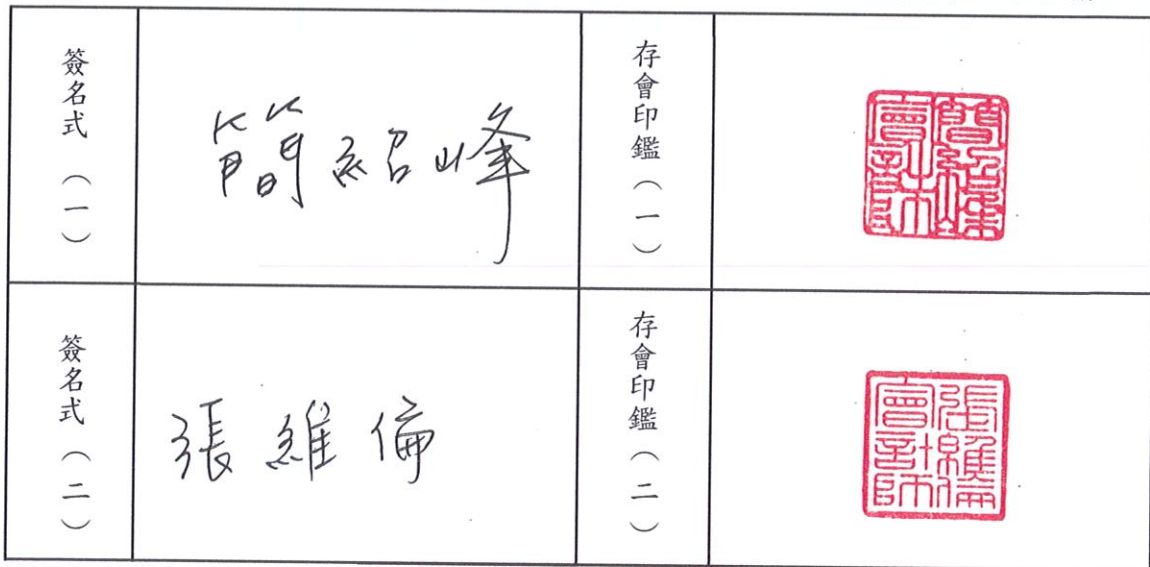 簽名式（一）
簡紹峰
存會印鑑（一）
簡紹峰會計師
簽名式（二）
張維倫
存會印鑑（二）
張維倫會計師